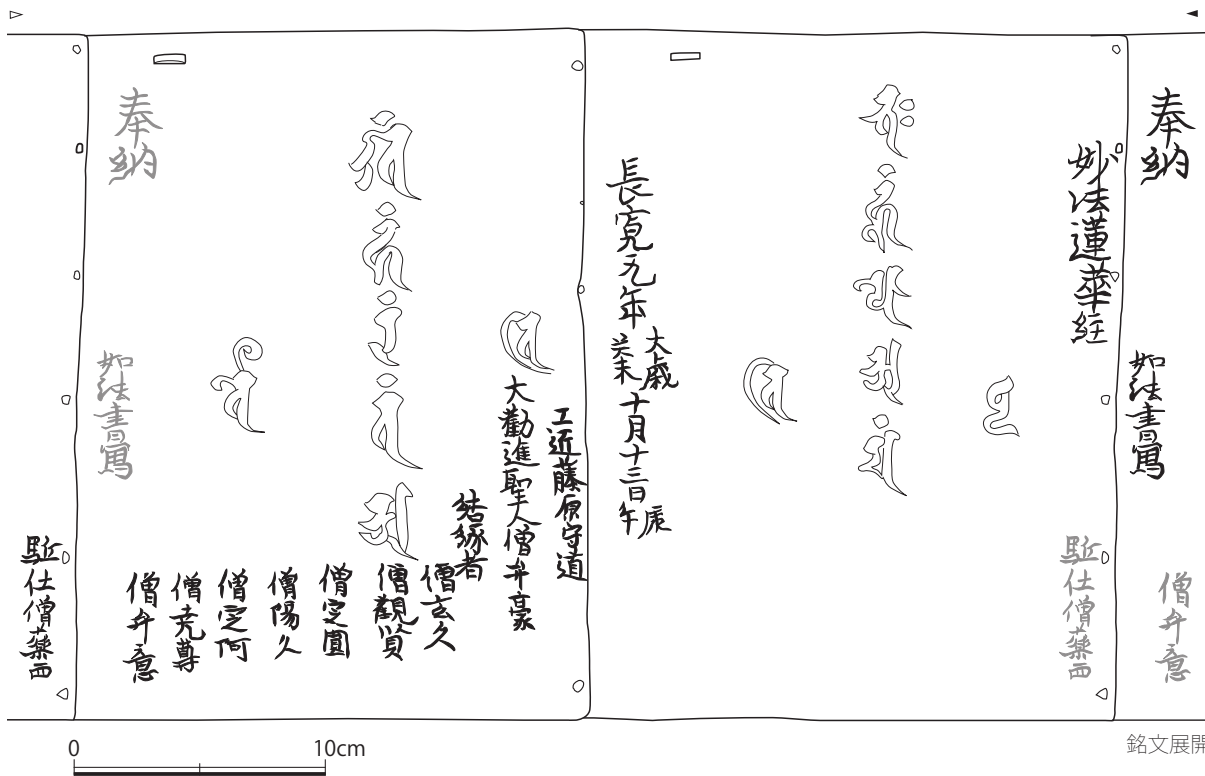 奉納
如法書寫
僧弁意
妙法蓮華経
駈仕僧薬西
長寛元年大歳癸未十月十三日庚午
工近藤原守道
大勧進聖人僧弁豪
結縁者
僧玄久
僧観賢
僧定圓
僧陽久
僧定阿
僧尭尊
僧弁意
奉納
如法書寫
駈仕僧薬西
0 10cm
銘文展開